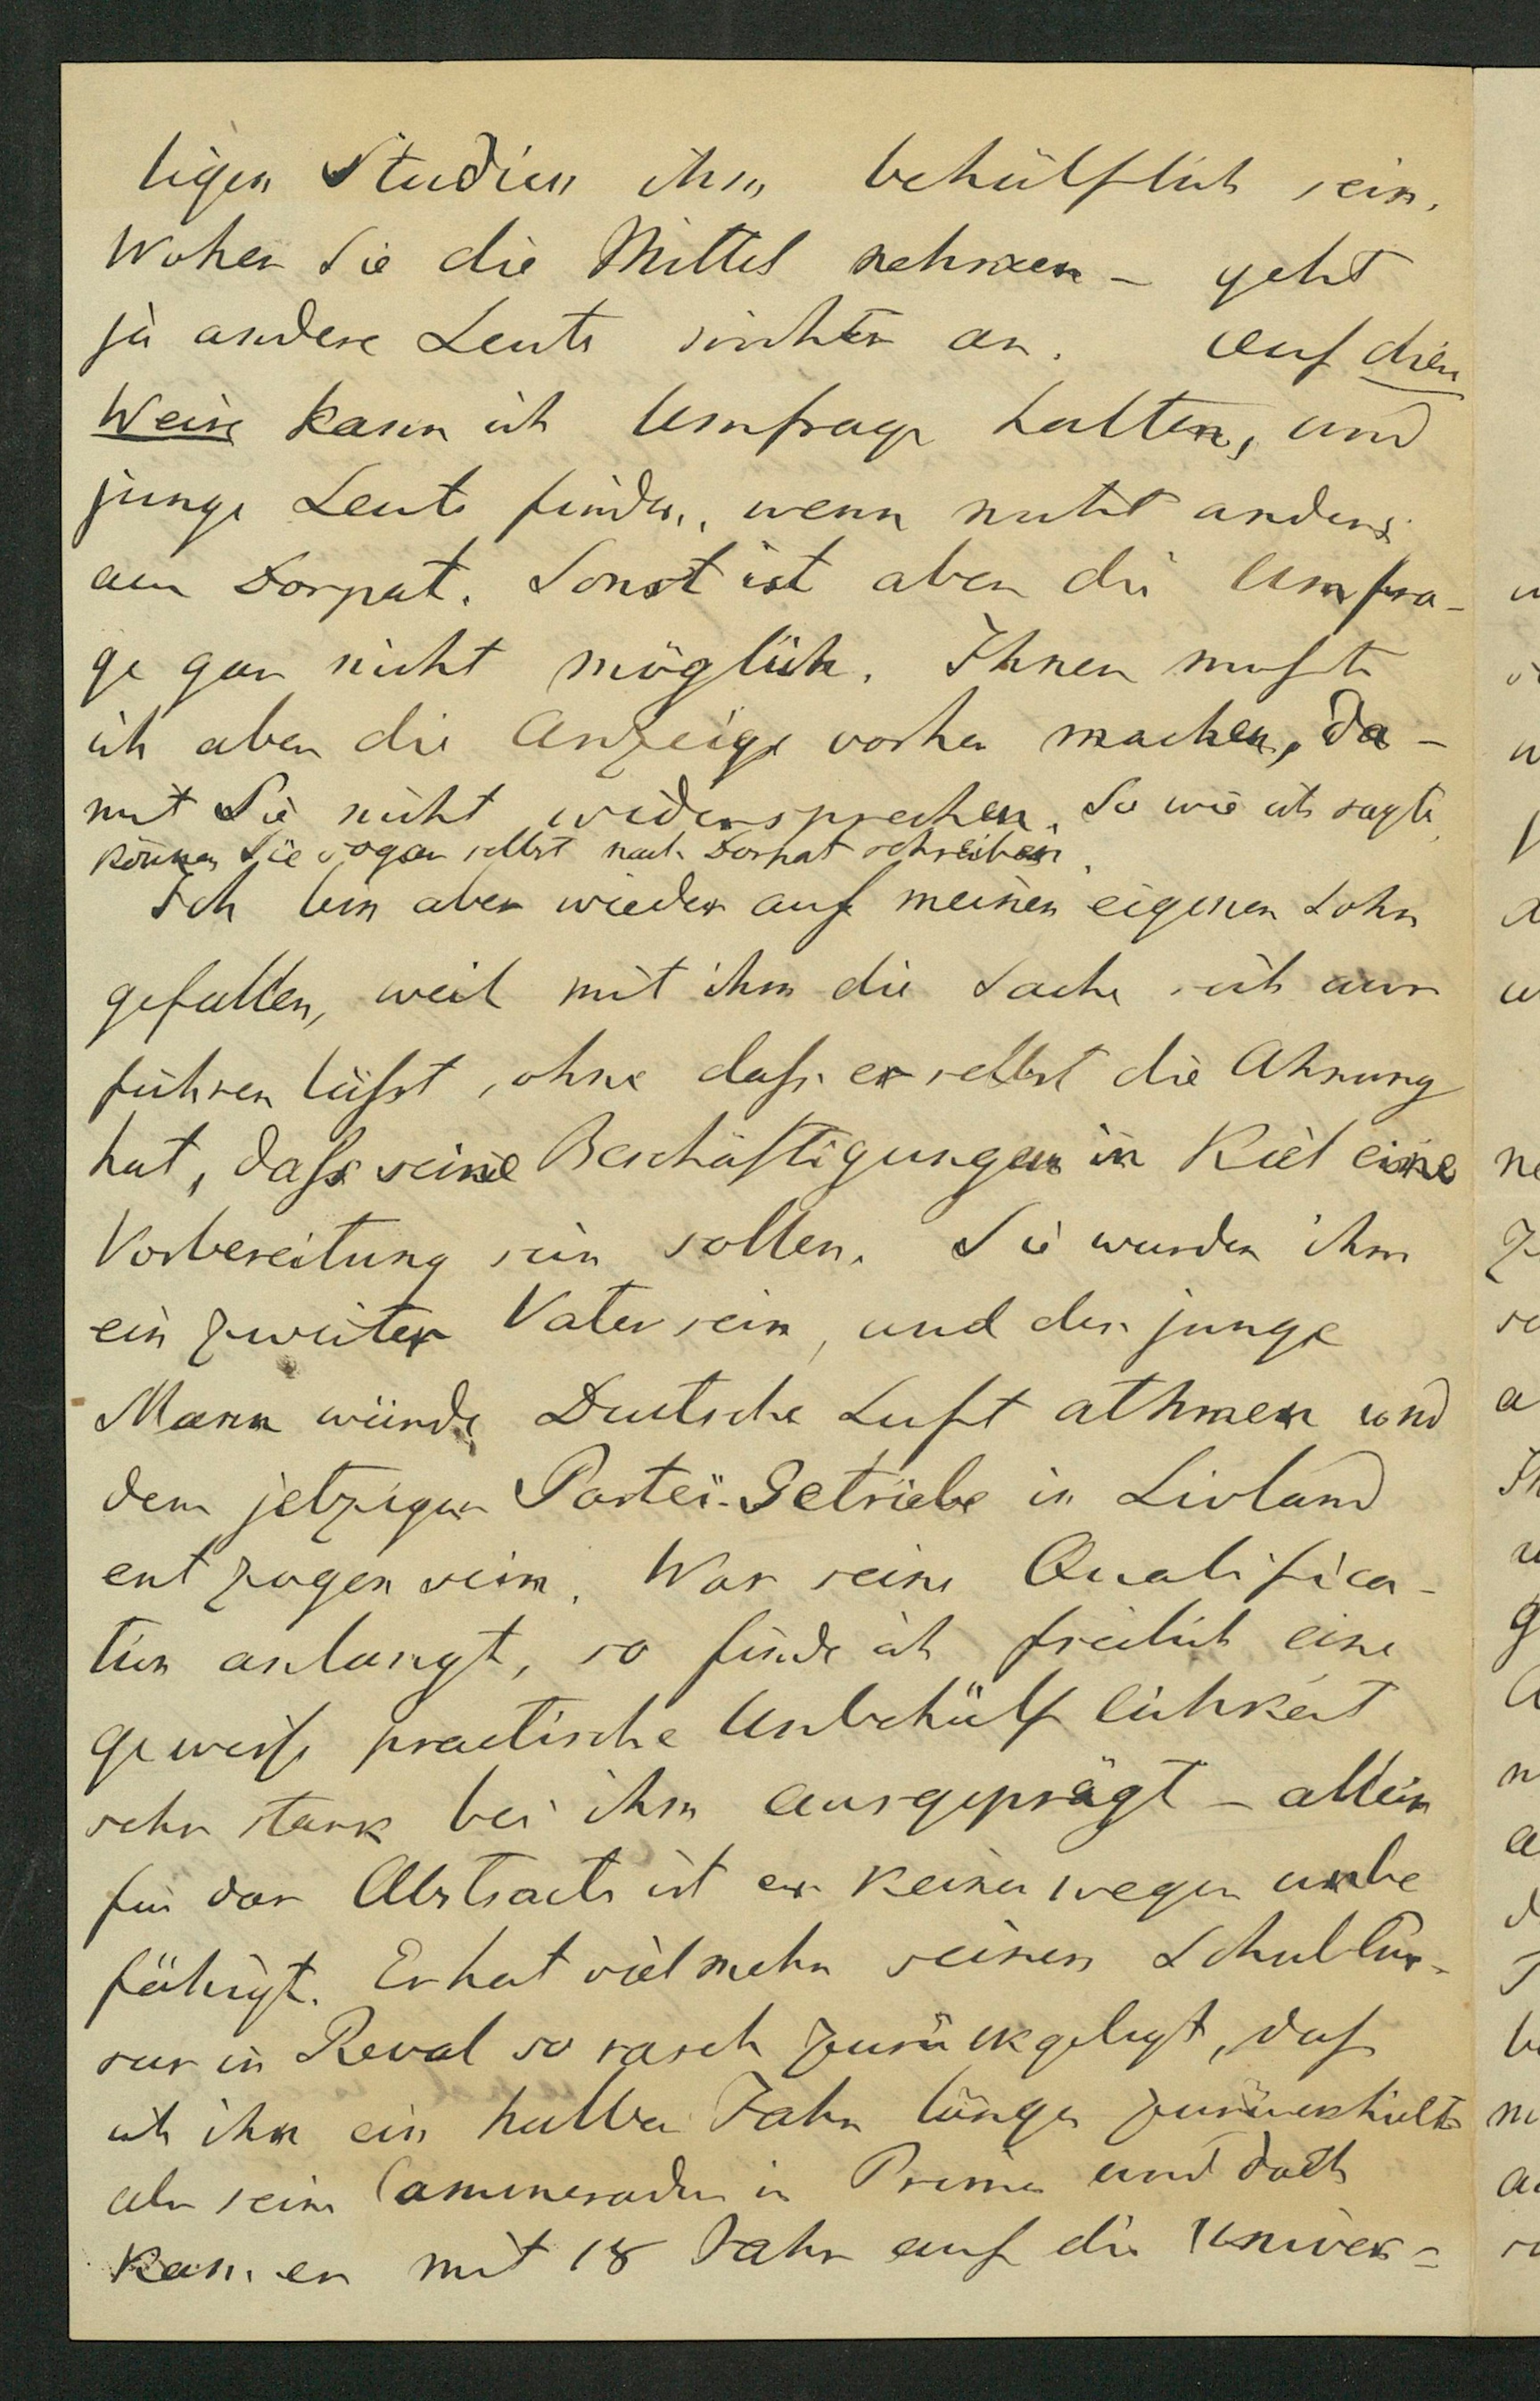 tigen Studien ihm behülflich sein.
Woher Sie die Mittel nehmen – geht
ja andere Leute nichts an. Auf diese
Weise kann ich Umfrage halten, und
junge Leute finden, wenn nicht anders
aus Dorpat. Sonst ist aber die Umfra-
ge gar nicht möglich. Ihnen mußte
ich aber die Anzeige vorher machen, da-
mit Sie nicht widersprechen. So wie ich sagte,
können Sie sogar selbst nach Dorpat schreiben.
Ich bin aber wieder auf meinen eigenen Sohn
gefallen, weil mit ihm die Sache sich aus
führen läßt, ohne daß er selbst die Ahnung
hat, daß seine Beschäftigungen in Kiel eine
Vorbereitung sein sollen. Sie wurden ihm
ein zweiter Vater sein, und der junge
Mann würde Deutsche Luft athmen und
dem jetzigen Partei-Getriebe in Livland
entzogen sein. Was seine Qualifica-
tion anlangt, so finde ich freilich eine
gewisse practische Unbehülflichkeit
sehr stark bei ihm ausgeprägt – allein
für das Abstracte ist er keineswegs unbe
fähigt. Er hat vielmehr seinen Schulcur-
sus in Reval so rasch zurückgelegt, daß
ich ihn ein halbes Jahr länger zurückhielt
als seine Cammeraden in Prima und doch
kam er mit 18 Jahr auf die Univer-